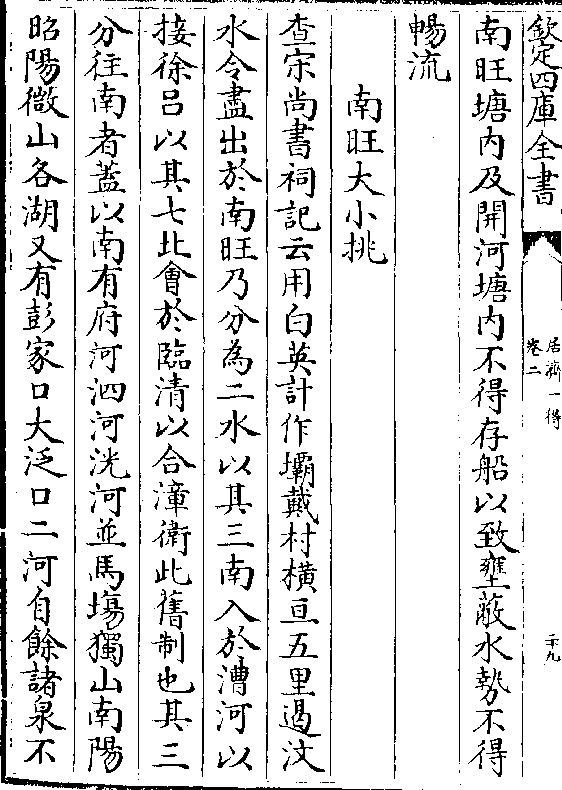 欽定四庫全書
居濟一得
卷二
二十九
南旺塘内及開河塘内不得存船以致壅蔽水勢不得
暢流
南旺大小挑
查宋尚書祠記云用白英計作壩戴村橫亘五里遏汶
水令盡出於南旺乃分為二水以其三南入於漕河以
接徐吕以其七北會於臨清以合漳衛此舊制也其三
分往南者蓋以南有府河泗河洸河並馬塲獨山南陽
昭陽微山各湖又有彭家口大泛口二河自餘諸泉不